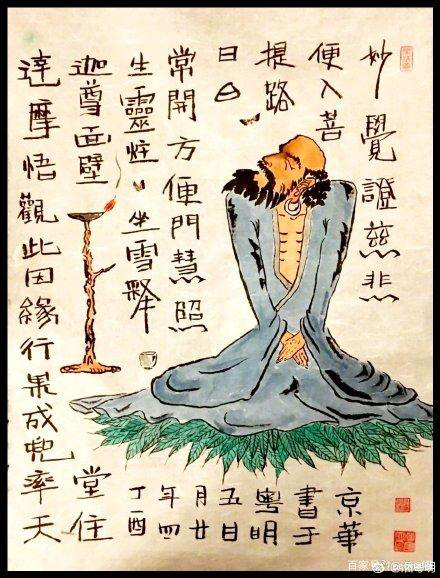 妙覺證慈悲
便入菩
提路
日日
常開方便門慧照
生靈炷坐雪擎
迦尊面壁堂住
達摩悟觀此因緣行果成兜率天
丁酉
年四
月廿
五日
粵明
書于
京華
百家号